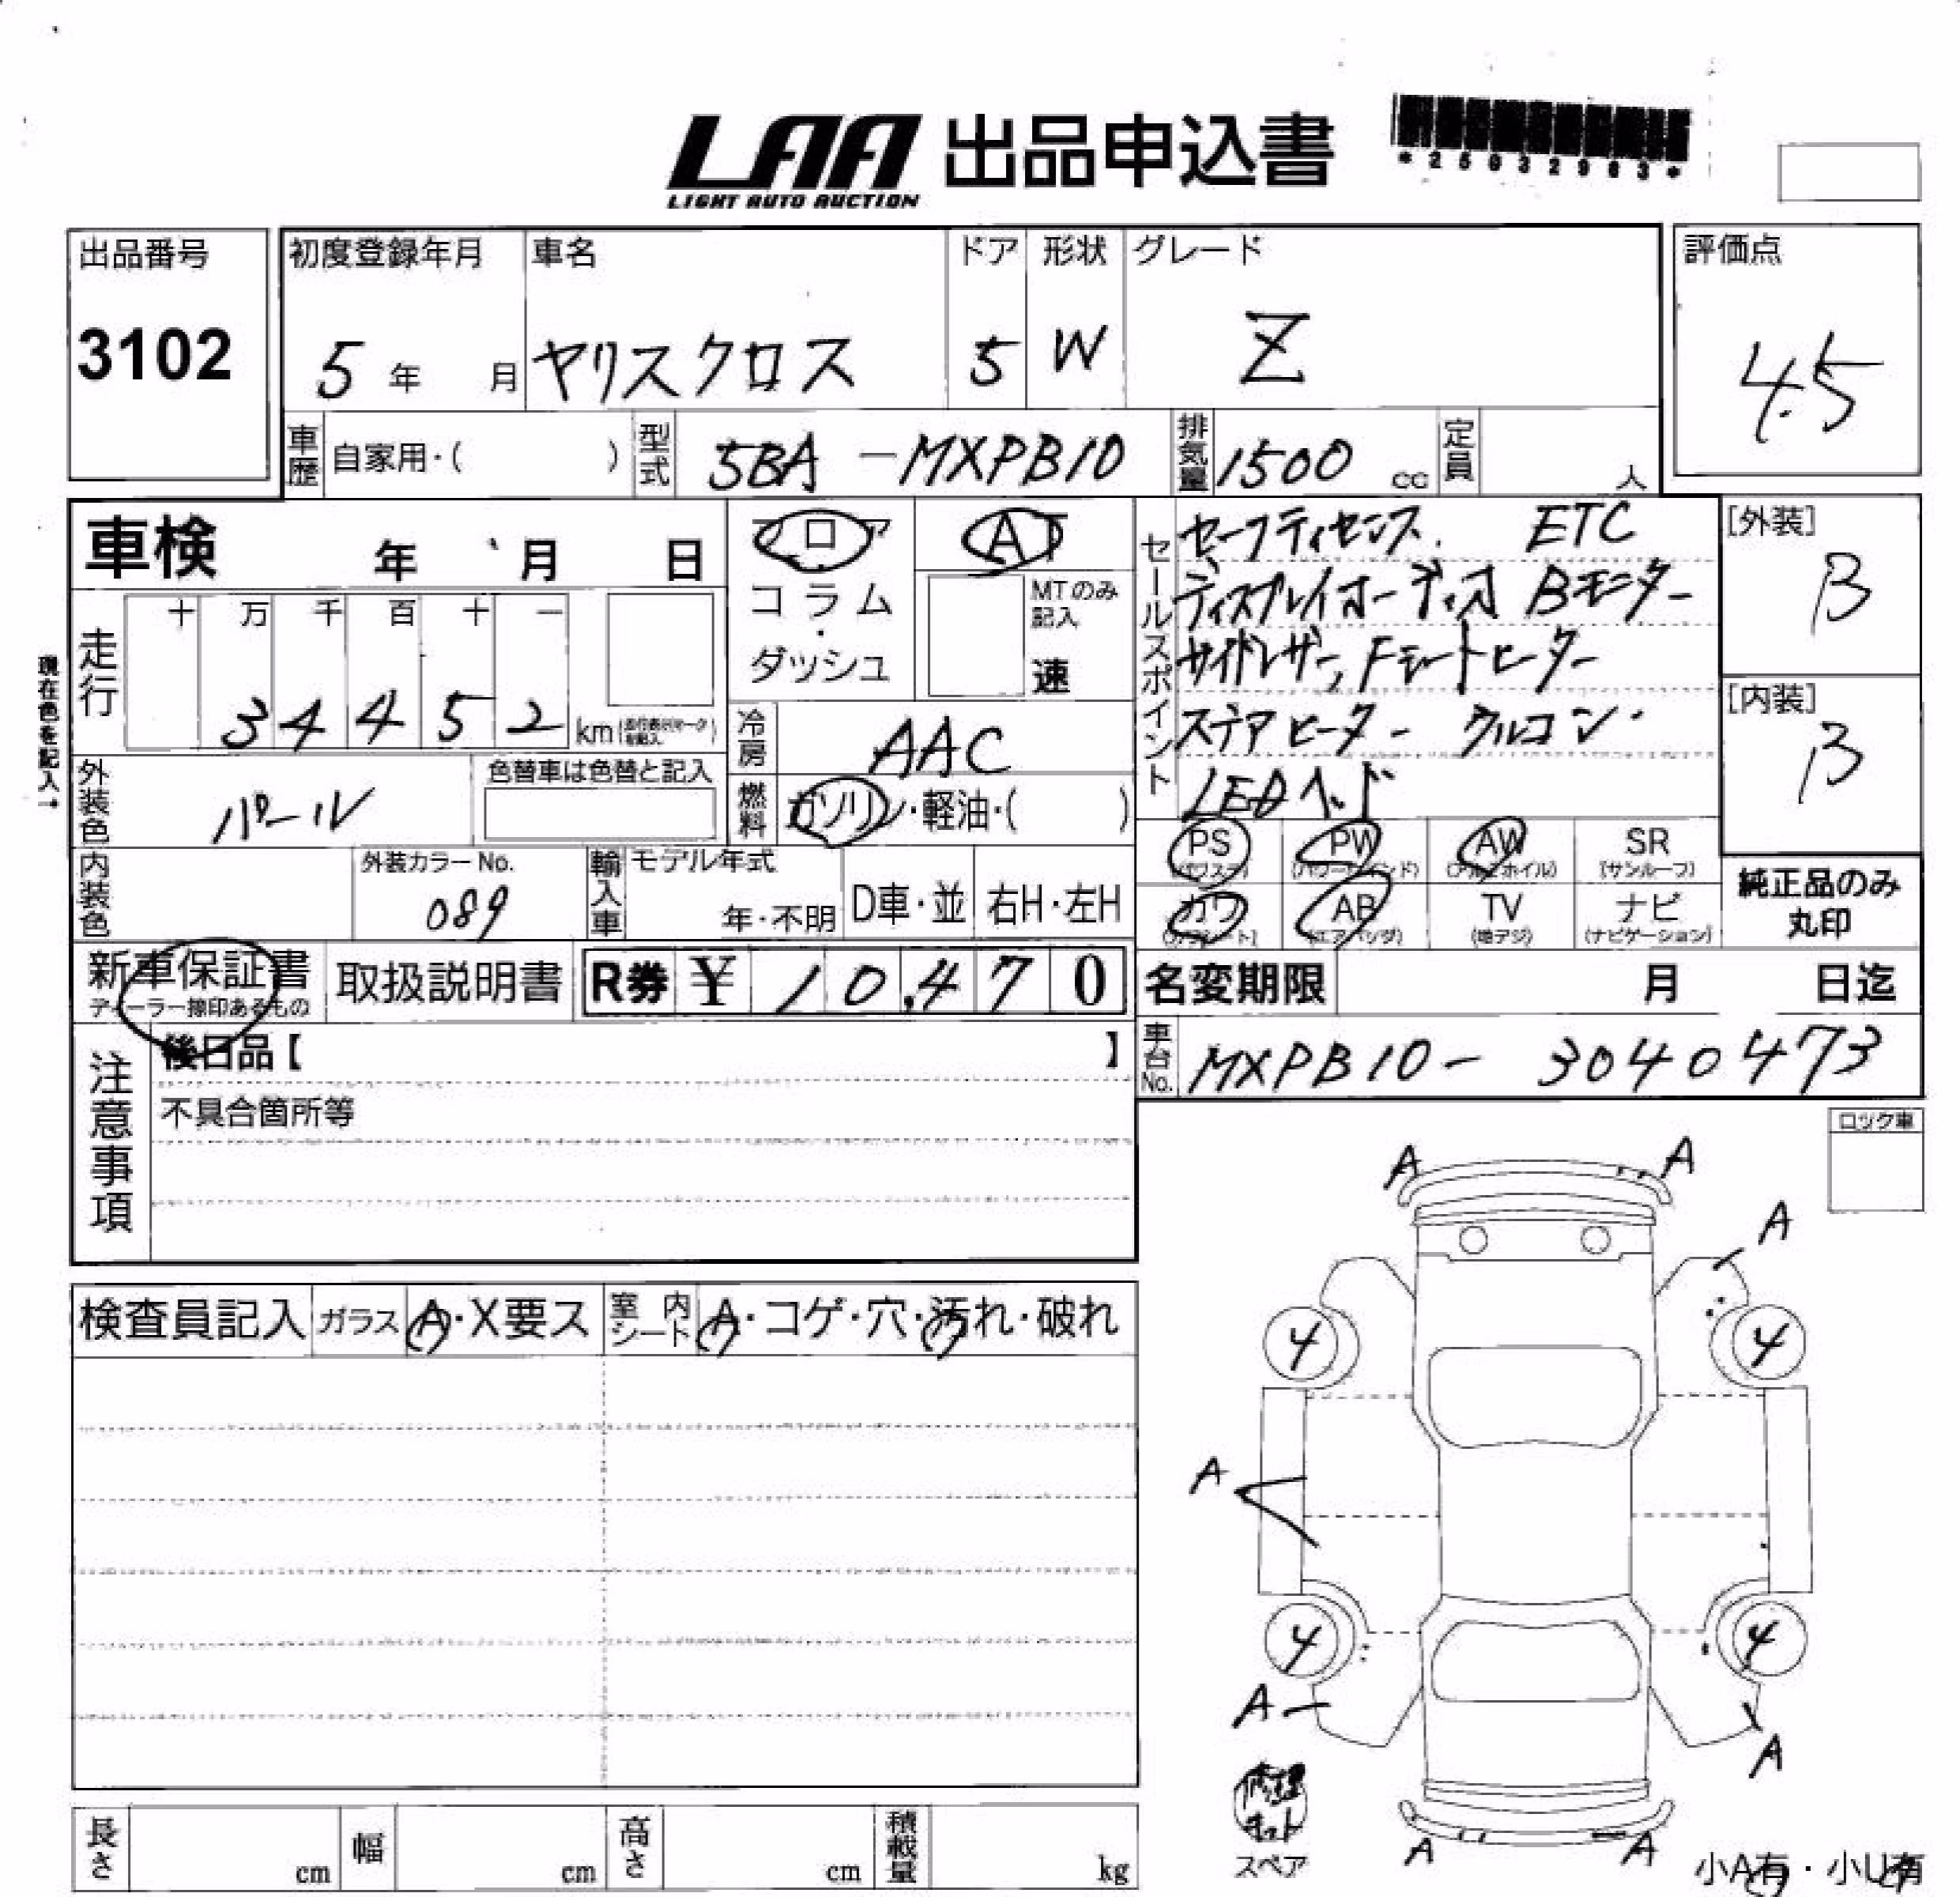 LAA 出品申込書
LIGHT AUTO AUCTION
*25032963*
出品番号
3102
初度登録年月
5年 月
車名
ヤリスクロス
ドア
5
形状
W
グレード
Z
評価点
4.5
車歴
自家用・( )
型式
5BA-MXPB10
排気量
1500 cc
定員
人
車検 年 月 日
フロア
コラム・ダッシュ
AT
MTのみ記入
速
セールスポイント
セーフティセンス. ETC
ディスプレイオーディオ Bモニター
サイドレザー, Fシートヒーター
ステアヒーター クルコン
LEDヘッド
[外装]
B
[内装]
B
現在色を記入→
走行
十 万 千 百 十 一
3 4 4 5 2 km
冷房
AAC
燃料
ガソリン・軽油・( )
外装色
パール
色替車は色替と記入
内装色
外装カラーNo.
089
輸入車
モデル年式
年・不明
D車・並
右H・左H
PS
(パワステ)
PW
(パワーウインド)
AW
(アルミホイル)
SR
(サンルーフ)
カワ
AB
(エアバッグ)
TV
(地デジ)
ナビ
(ナビゲーション)
純正品のみ
丸印
新車保証書
ディーラー捺印あるもの
取扱説明書
R券 ¥ 10,470
名変期限 月 日迄
車台No.
MXPB10-3040473
注意事項
後日品【 】
不具合箇所等
ロック車
検査員記入
ガラス
A・X要ス
室内シート
A・コゲ・穴・汚れ・破れ
A A
A
4 4
A
4 4
A
A
修理キット
スペア
A A
小A有・小U有
長さ cm
幅 cm
高さ cm
積載量 kg